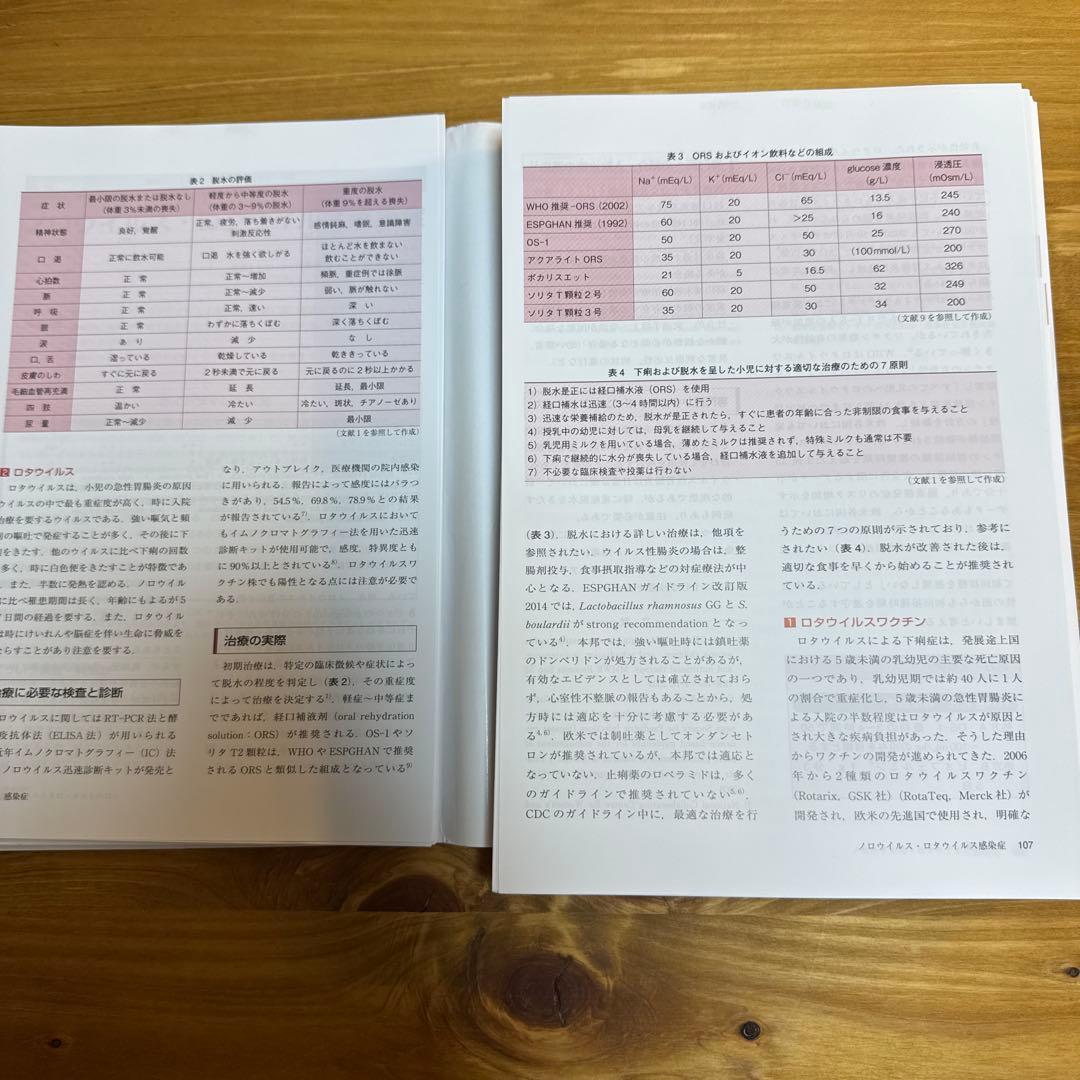 表2 脱水の評価
症 状 最小限の脱水または脱水なし（体重3%未満の喪失） 軽度から中等度の脱水（体重の3〜9%の脱水） 重度の脱水（体重9%を超える喪失）
精神状態 良好，覚醒 正常，疲労，落ち着きがない 刺激反応性 感情鈍麻，嗜眠，意識障害
口 渇 正常に飲水可能 口渇 水を強く欲しがる ほとんど水を飲まない 飲むことができない
心拍数 正 常 正常〜増加 頻脈，重症例では徐脈
脈 正 常 正常〜減少 弱い，脈が触れない
呼 吸 正 常 正常，速い 深 い
眼 正 常 わずかに落ちくぼむ 深く落ちくぼむ
涙 あ り 減 少 な し
口，舌 湿っている 乾燥している 乾ききっている
皮膚のしわ すぐに元に戻る 2秒未満で元に戻る 元に戻るのに2秒以上かかる
毛細血管再充満 正 常 延 長 延長，最小限
四 肢 温かい 冷たい 冷たい，斑状，チアノーゼあり
尿 量 正常〜減少 減 少 最小限
（文献1を参照して作成）
2 ロタウイルス
ロタウイルスは，小児の急性胃腸炎の原因
ウイルスの中で最も重症度が高く，時に入院
治療を要するウイルスである．強い嘔気と頻
の嘔吐で発症することが多く，その後に下
をきたす．他のウイルスに比べ下痢の回数
多く，時に白色便をきたすことが特徴であ
．また，半数に発熱を認める．ノロウイル
に比べ罹患期間は長く，年齢にもよるが5
日間の経過を要する．また，ロタウイル
は時にけいれんや脳症を伴い生命に脅威を
たらすことがあり注意を要する．
治療に必要な検査と診断
ロウイルスに関してはRT-PCR法と酵
疫抗体法（ELISA法）が用いられる
近年イムノクロマトグラフィー（IC）法
ノロウイルス迅速診断キットが発売と
なり，アウトブレイク，医療機関の院内感染
に用いられる．報告によって感度にはバラつ
きがあり，54.5%，69.8%，78.9%との結果
が報告されている7)．ロタウイルスにおいて
もイムノクロマトグラフィー法を用いた迅速
診断キットが使用可能で，感度，特異度とも
に90%以上とされている8)．ロタウイルスワ
クチン株でも陽性となる点には注意が必要で
ある．
治療の実際
初期治療は，特定の臨床徴候や症状によっ
て脱水の程度を判定し（表2），その重症度
によって治療を決定する1)．軽症〜中等症ま
でであれば，経口補液剤（oral rehydration
solution：ORS）が推奨される．OS-1やソ
リタT2顆粒は，WHOやESPGHANで推奨
されるORSと類似した組成となっている9)
感染症
表3 ORSおよびイオン飲料などの組成
Na⁺(mEq/L) K⁺(mEq/L) Cl⁻(mEq/L) glucose 濃度(g/L) 浸透圧(mOsm/L)
WHO 推奨-ORS (2002) 75 20 65 13.5 245
ESPGHAN 推奨 (1992) 60 20 >25 16 240
OS-1 50 20 50 25 270
アクアライト ORS 35 20 30 (100mmol/L) 200
ポカリスエット 21 5 16.5 62 326
ソリタT顆粒2号 60 20 50 32 249
ソリタT顆粒3号 35 20 30 34 200
（文献9を参照して作成）
表4 下痢および脱水を呈した小児に対する適切な治療のための7原則
1）脱水是正には経口補水液（ORS）を使用
2）経口補水は迅速（3〜4時間以内）に行う
3）迅速な栄養補給のため，脱水が是正されたら，すぐに患者の年齢に合った非制限の食事を与えること
4）授乳中の幼児に対しては，母乳を継続して与えること
5）乳児用ミルクを用いている場合，薄めたミルクは推奨されず，特殊ミルクも通常は不要
6）下痢で継続的に水分が喪失している場合，経口補水液を追加して与えること
7）不必要な臨床検査や投薬は行わない
（文献1を参照して作成）
（表3）．脱水における詳しい治療は，他項を
参照されたい．ウイルス性腸炎の場合は，整
腸剤投与，食事摂取指導などの対症療法が中
心となる．ESPGHANガイドライン改訂版
2014では，Lactobacillus rhamnosus GGとS.
boulardiiがstrong recommendationとなっ
ている4)．本邦では，強い嘔吐時には鎮吐薬
のドンペリドンが処方されることがあるが，
有効なエビデンスとしては確立されておら
ず，心室性不整脈の報告もあることから，処
方時には適応を十分に考慮する必要があ
る4,6)．欧米では制吐薬としてオンダンセト
ロンが推奨されているが，本邦では適応と
なっていない．止痢薬のロペラミドは，多く
のガイドラインで推奨されていない5,6)．
CDCのガイドライン中に，最適な治療を行
うための7つの原則が示されており，参考に
されたい（表4）．脱水が改善された後は，
適切な食事を早くから始めることが推奨され
ている．
1 ロタウイルスワクチン
ロタウイルスによる下痢症は，発展途上国
における5歳未満の乳幼児の主要な死亡原因
の一つであり，乳幼児期では約40人に1人
の割合で重症化し，5歳未満の急性胃腸炎に
よる入院の半数程度はロタウイルスが原因と
され大きな疾病負担があった．そうした理由
からワクチンの開発が進められてきた．2006
年から2種類のロタウイルスワクチン
（Rotarix，GSK社）（RotaTeq，Merck社）が
開発され，欧米の先進国で使用され，明確な
ノロウイルス・ロタウイルス感染症 107